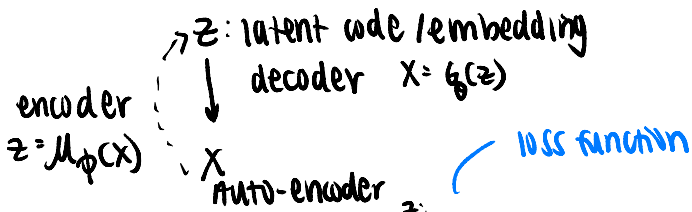 z: latent code /embedding
decoder x = G_θ(z)
encoder
z = μ_φ(x)
X
Auto-encoder
loss function